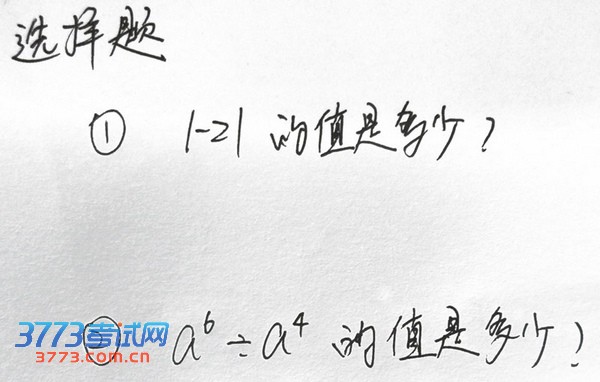 选择题
① |-2| 的值是多少?
② a⁶÷a⁴ 的值是多少?
3773考试网
3773.com.cn